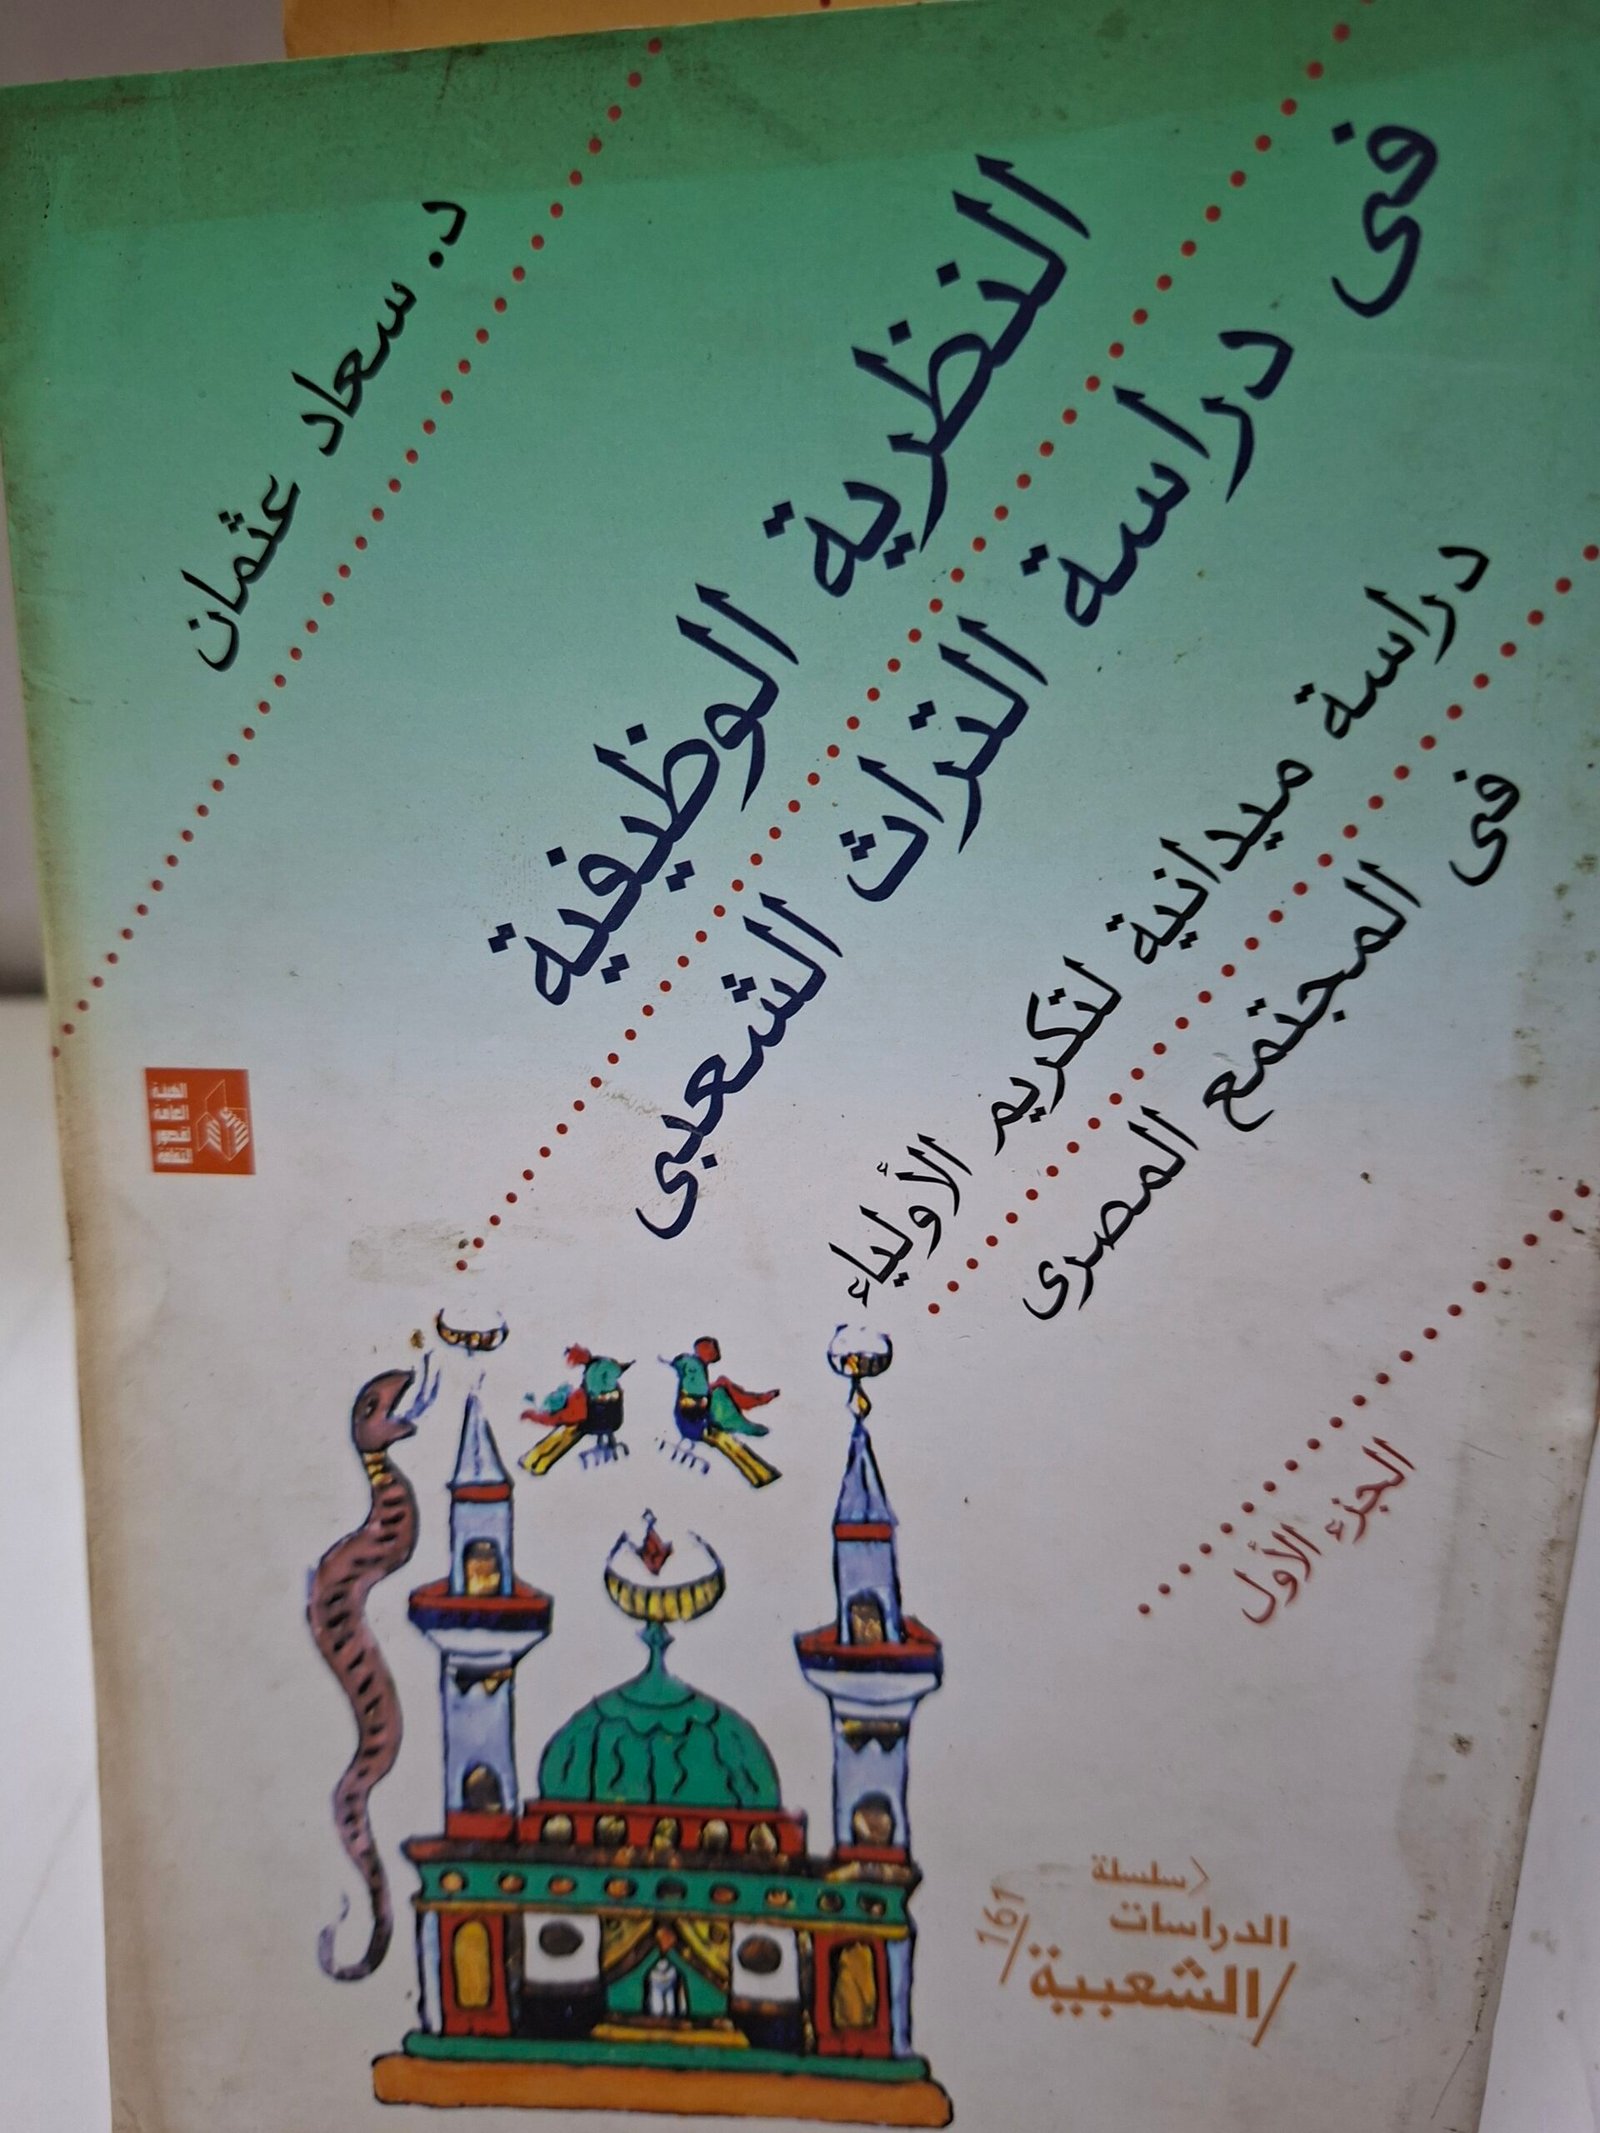 د. سعاد عثمان
النظرية الوظيفية
فى دراسة التراث الشعبى
دراسة ميدانية لتكريم الأولياء
فى المجتمع المصرى
الجزء الأول
الهيئة
العامة
لقصور
الثقافة
سلسلة
الدراسات
الشعبية
161